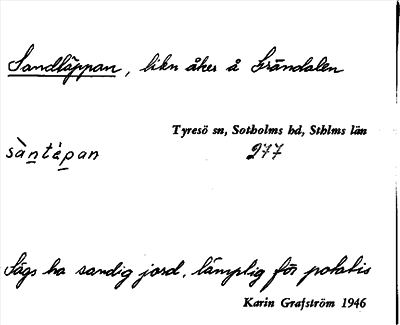 Sandläppan, likn åker å Grändalen
Tyresö sn, Sotholms hd, Sthlms län
sàntépan 277
Sägs ha sandig jord, lämplig för potatis
Karin Grafström 1946